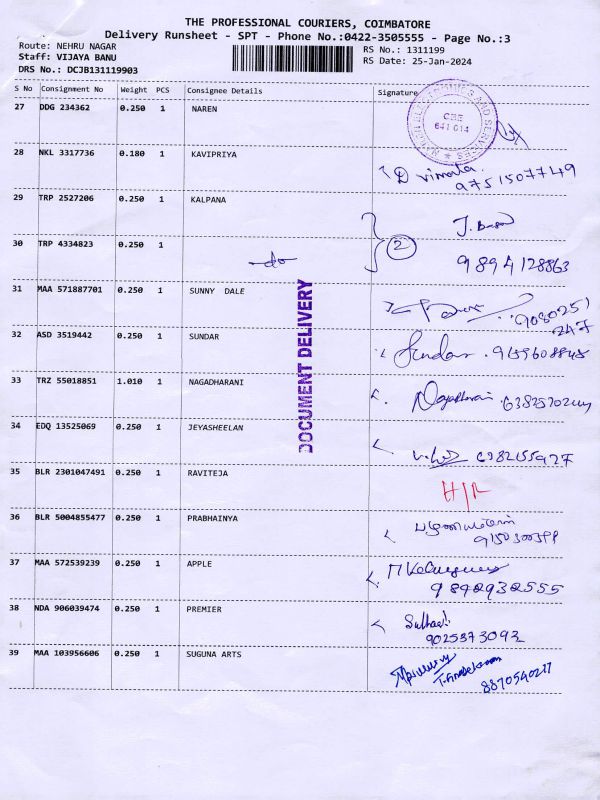 THE PROFESSIONAL COURIERS, COIMBATORE
Delivery Runsheet - SPT - Phone No.:0422-3505555 - Page No.:3
Route: NEHRU NAGAR
RS No.: 1311199
Staff: VIJAYA BANU
RS Date: 25-Jan-2024
DRS No.: DCJB131119903
S No Consignment No Weight PCS Consignee Details Signature
27 DDG 234362 0.250 1 NAREN
CBE
641 014
28 NKL 3317736 0.180 1 KAVIPRIYA
D Vimala
9751507749
29 TRP 2527206 0.250 1 KALPANA
30 TRP 4334823 0.250 1 -do- 2
9894128863
31 MAA 571887701 0.250 1 SUNNY DALE
9080251
247
DOCUMENT DELIVERY
32 ASD 3519442 0.250 1 SUNDAR Sundar
33 TRZ 55018851 1.010 1 NAGADHARANI Nagadharani
34 EDQ 13525069 0.250 1 JEYASHEELAN
35 BLR 2301047491 0.250 1 RAVITEJA H/R
36 BLR 5004855477 0.250 1 PRABHAINYA
37 MAA 572539239 0.250 1 APPLE
9892932555
38 NDA 906039474 0.250 1 PREMIER
9025373092
39 MAA 103956606 0.250 1 SUGUNA ARTS